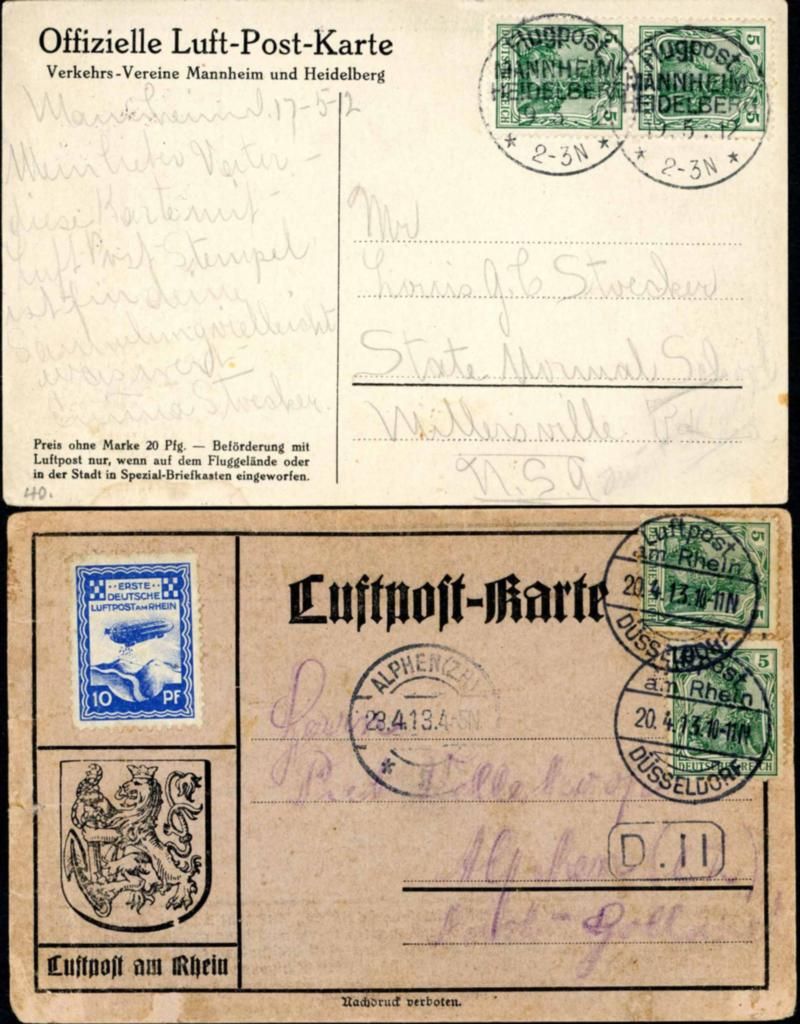 Offizielle Luft-Post-Karte
Verkehrs-Vereine Mannheim und Heidelberg
Flugpost
MANNHEIM-
HEIDELBERG
2-3N
DEUTSCHES REICH
5
Flugpost
MANNHEIM-
HEIDELBERG
19.5.12
2-3N
5
Mannheim d. 17-5-12
Mein lieber Vater -
diese Karte mit
Luft Post Stempel
ist für deine
Sammlung vielleicht
was wert -
Emma Stroecker.
Mr
Louis G. C Stroecker
State Normal School
Millersville Pa
U.S.A
Preis ohne Marke 20 Pfg. — Beförderung mit
Luftpost nur, wenn auf dem Fluggelände oder
in der Stadt in Spezial-Briefkasten eingeworfen.
40.
ERSTE
DEUTSCHE
LUFTPOST AM RHEIN
10 PF
Luftpost-Karte
Luftpost
am Rhein
20.4.13.10-11N
DÜSSELDORF
5
Luftpost
am Rhein
20.4.13.10-11N
DÜSSELDORF
5
DEUTSCHES REICH
ALPHEN(ZH)
23.4.13.4-5N
Alphen
D.II
Luftpost am Rhein
Nachdruck verboten.